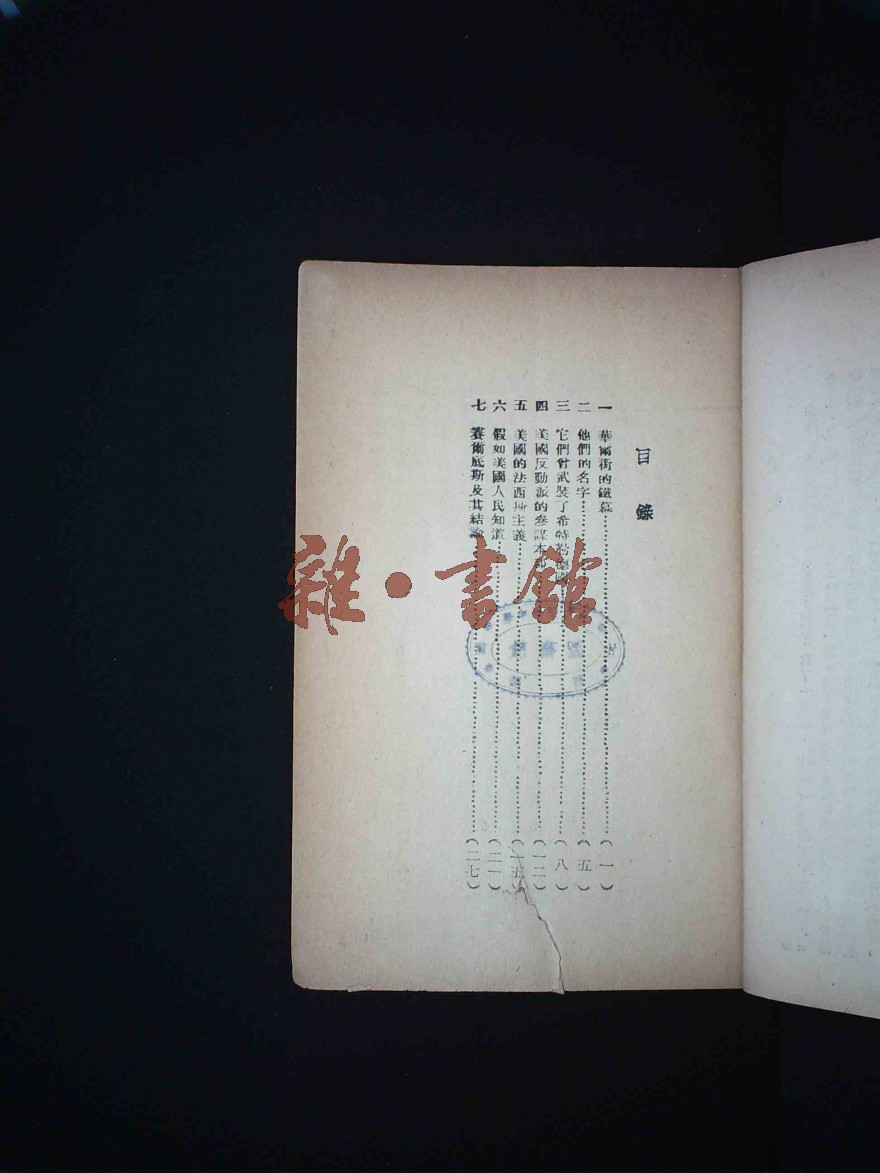 目錄
一 華爾街的鐵幕…………(一)
二 他們的名字…………(五)
三 它們曾武裝了希特勒德國…………(八)
四 美國反動派的參謀本部…………(一二)
五 美國的法西斯主義…………(一五)
六 假如美國人民知道…………(二一)
七 賽爾底斯及其結論…………(二七)
雜·書館